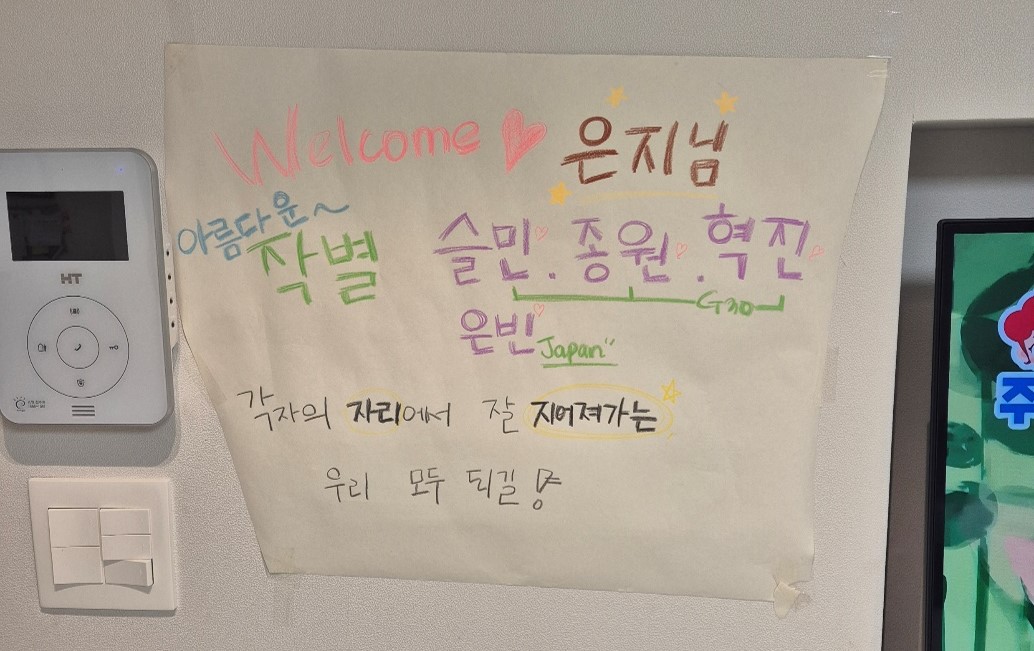 Welcome ♥ 은지님
아름다운~
작별 슬민. 종원. 혁진
G30
은빈 Japan"
각자의 자리에서 잘 지어져가는
우리 모두 되길
HT
주